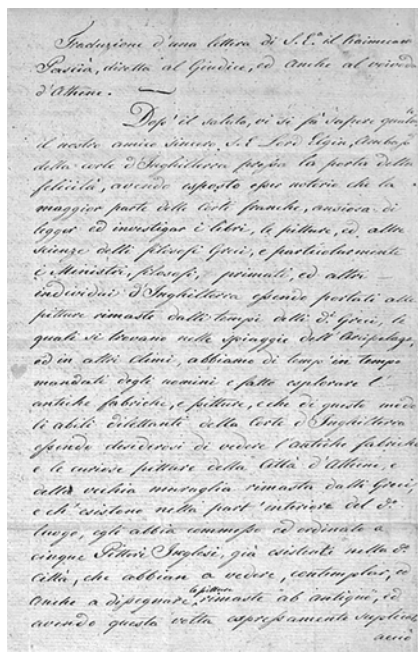 Traduzione d'una lettera di S. E.ª il Kaimecam
Pascià, diretta al Giudice, ed anche al voivoda
d'Athene. —
Dopo il saluto, vi si fà sapere qualm.
il nostro amico sincero S. E. Lord Elgin, Ambasc
della corte d'Inghilterra presso la porta della
felicità, avendo esposto esser notorio che la
maggior parte delle Corti franche, ansiosa di
legger ed investigar i libri, le pitture, ed altre
scienze delli filosofi Greci, e particolarmente
i Ministri, filosofi, primati, ed altri —
individui d'Inghilterra essendo portati alle
pitture rimaste dalli tempi delli d.ⁱ Greci, le
quali si trovano nelle spiaggie dell'Arcipelago,
ed in altri climi, abbiamo di temp' in tempo
mandati degli uomini e fatto esplorare l'
antiche fabriche, e pitture, e che di questo modo
li abili dilettanti della Corte d'Inghilterra
essendo desiderosi di vedere l'antiche fabriche
e le curiose pitture della Città d'Athene, e
della vechia muraglia rimasta dalli Greci,
e ch'esistono nella part' interiore del d.º
luogo, egli abbia commesso ed ordinato a
cinque Pittori Inglesi, già esistenti nella d.ª
Città, che abbian a vedere, contemplar, ed
anche a disegnare, le pitture rimaste ab antiquo, ed
avendo questa volta espressamente supplicat
acciò